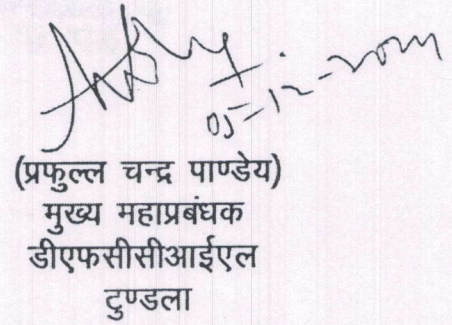 05-12-
(प्रफुल्ल चन्द्र पाण्डेय)
मुख्य महाप्रबंधक
डीएफसीसीआईएल
टुण्डला